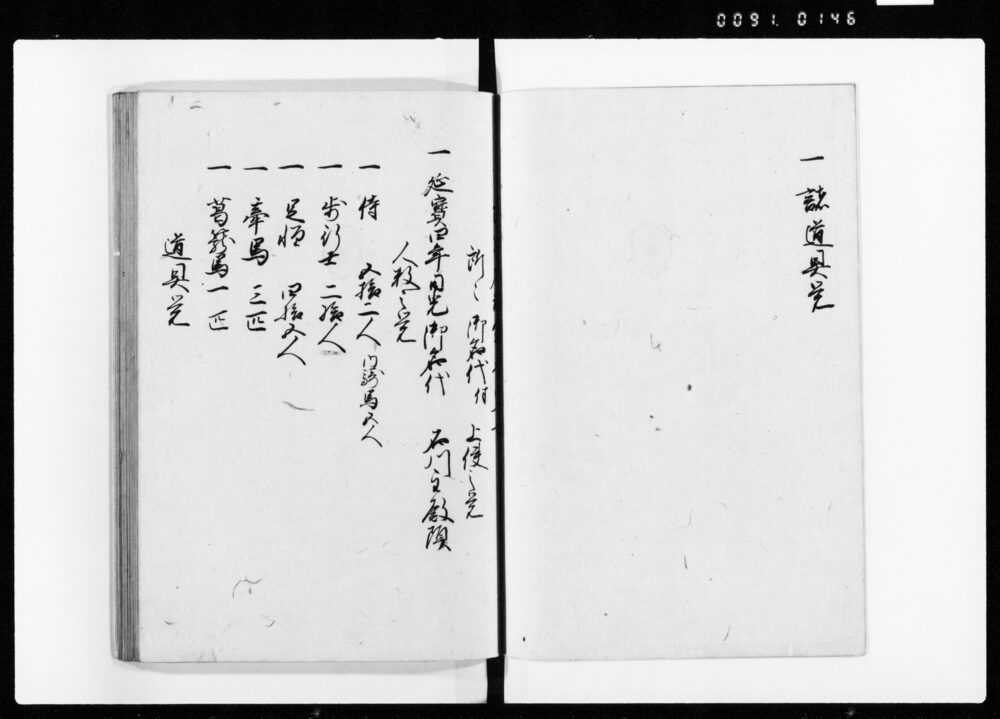 0091. 0146
一 諸道具覚
所々御名代付 上使之覚
一 延寶四年日光御名代 石川主殿頭
人数之覚
一 侍 五拾二人 内騎馬五人
一 歩行士 二拾人
一 足軽 四拾五人
一 牽馬 三匹
一 葛籠馬一匹
道具覚